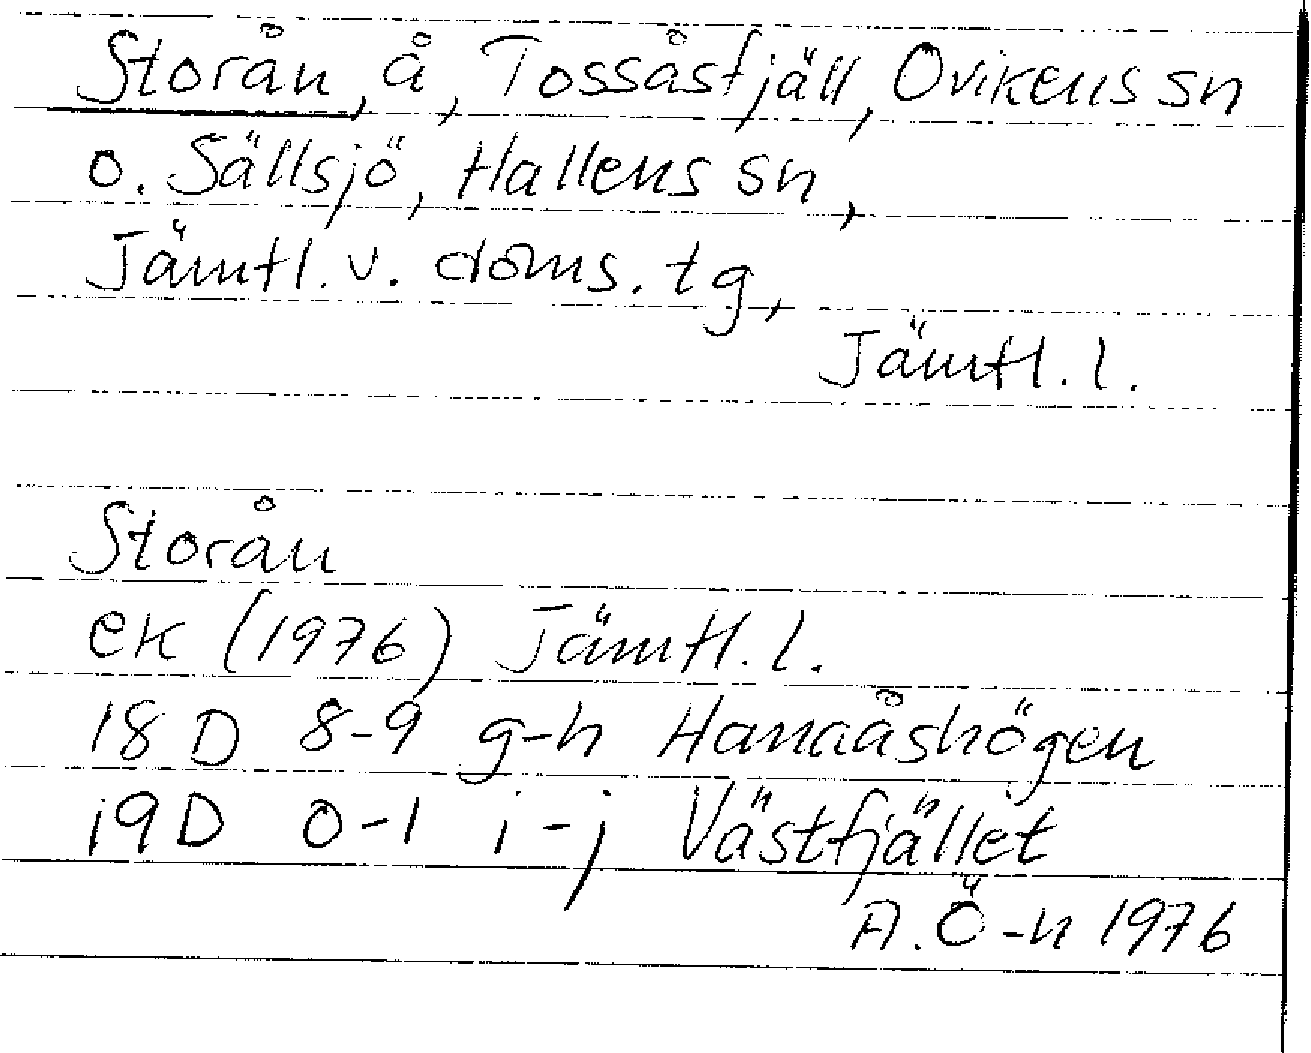 Storån, å, Tossåsfjäll, Ovikens sn
o. Sällsjö, Hallens sn,
Jämtl. v. doms. tg,
Jämtl. l.
Storån
ek (1976) Jämtl. l.
18 D 8-9 g-h Hanaåshögen
19D 0-1 i-j Västfjället
A. Ö-n 1976